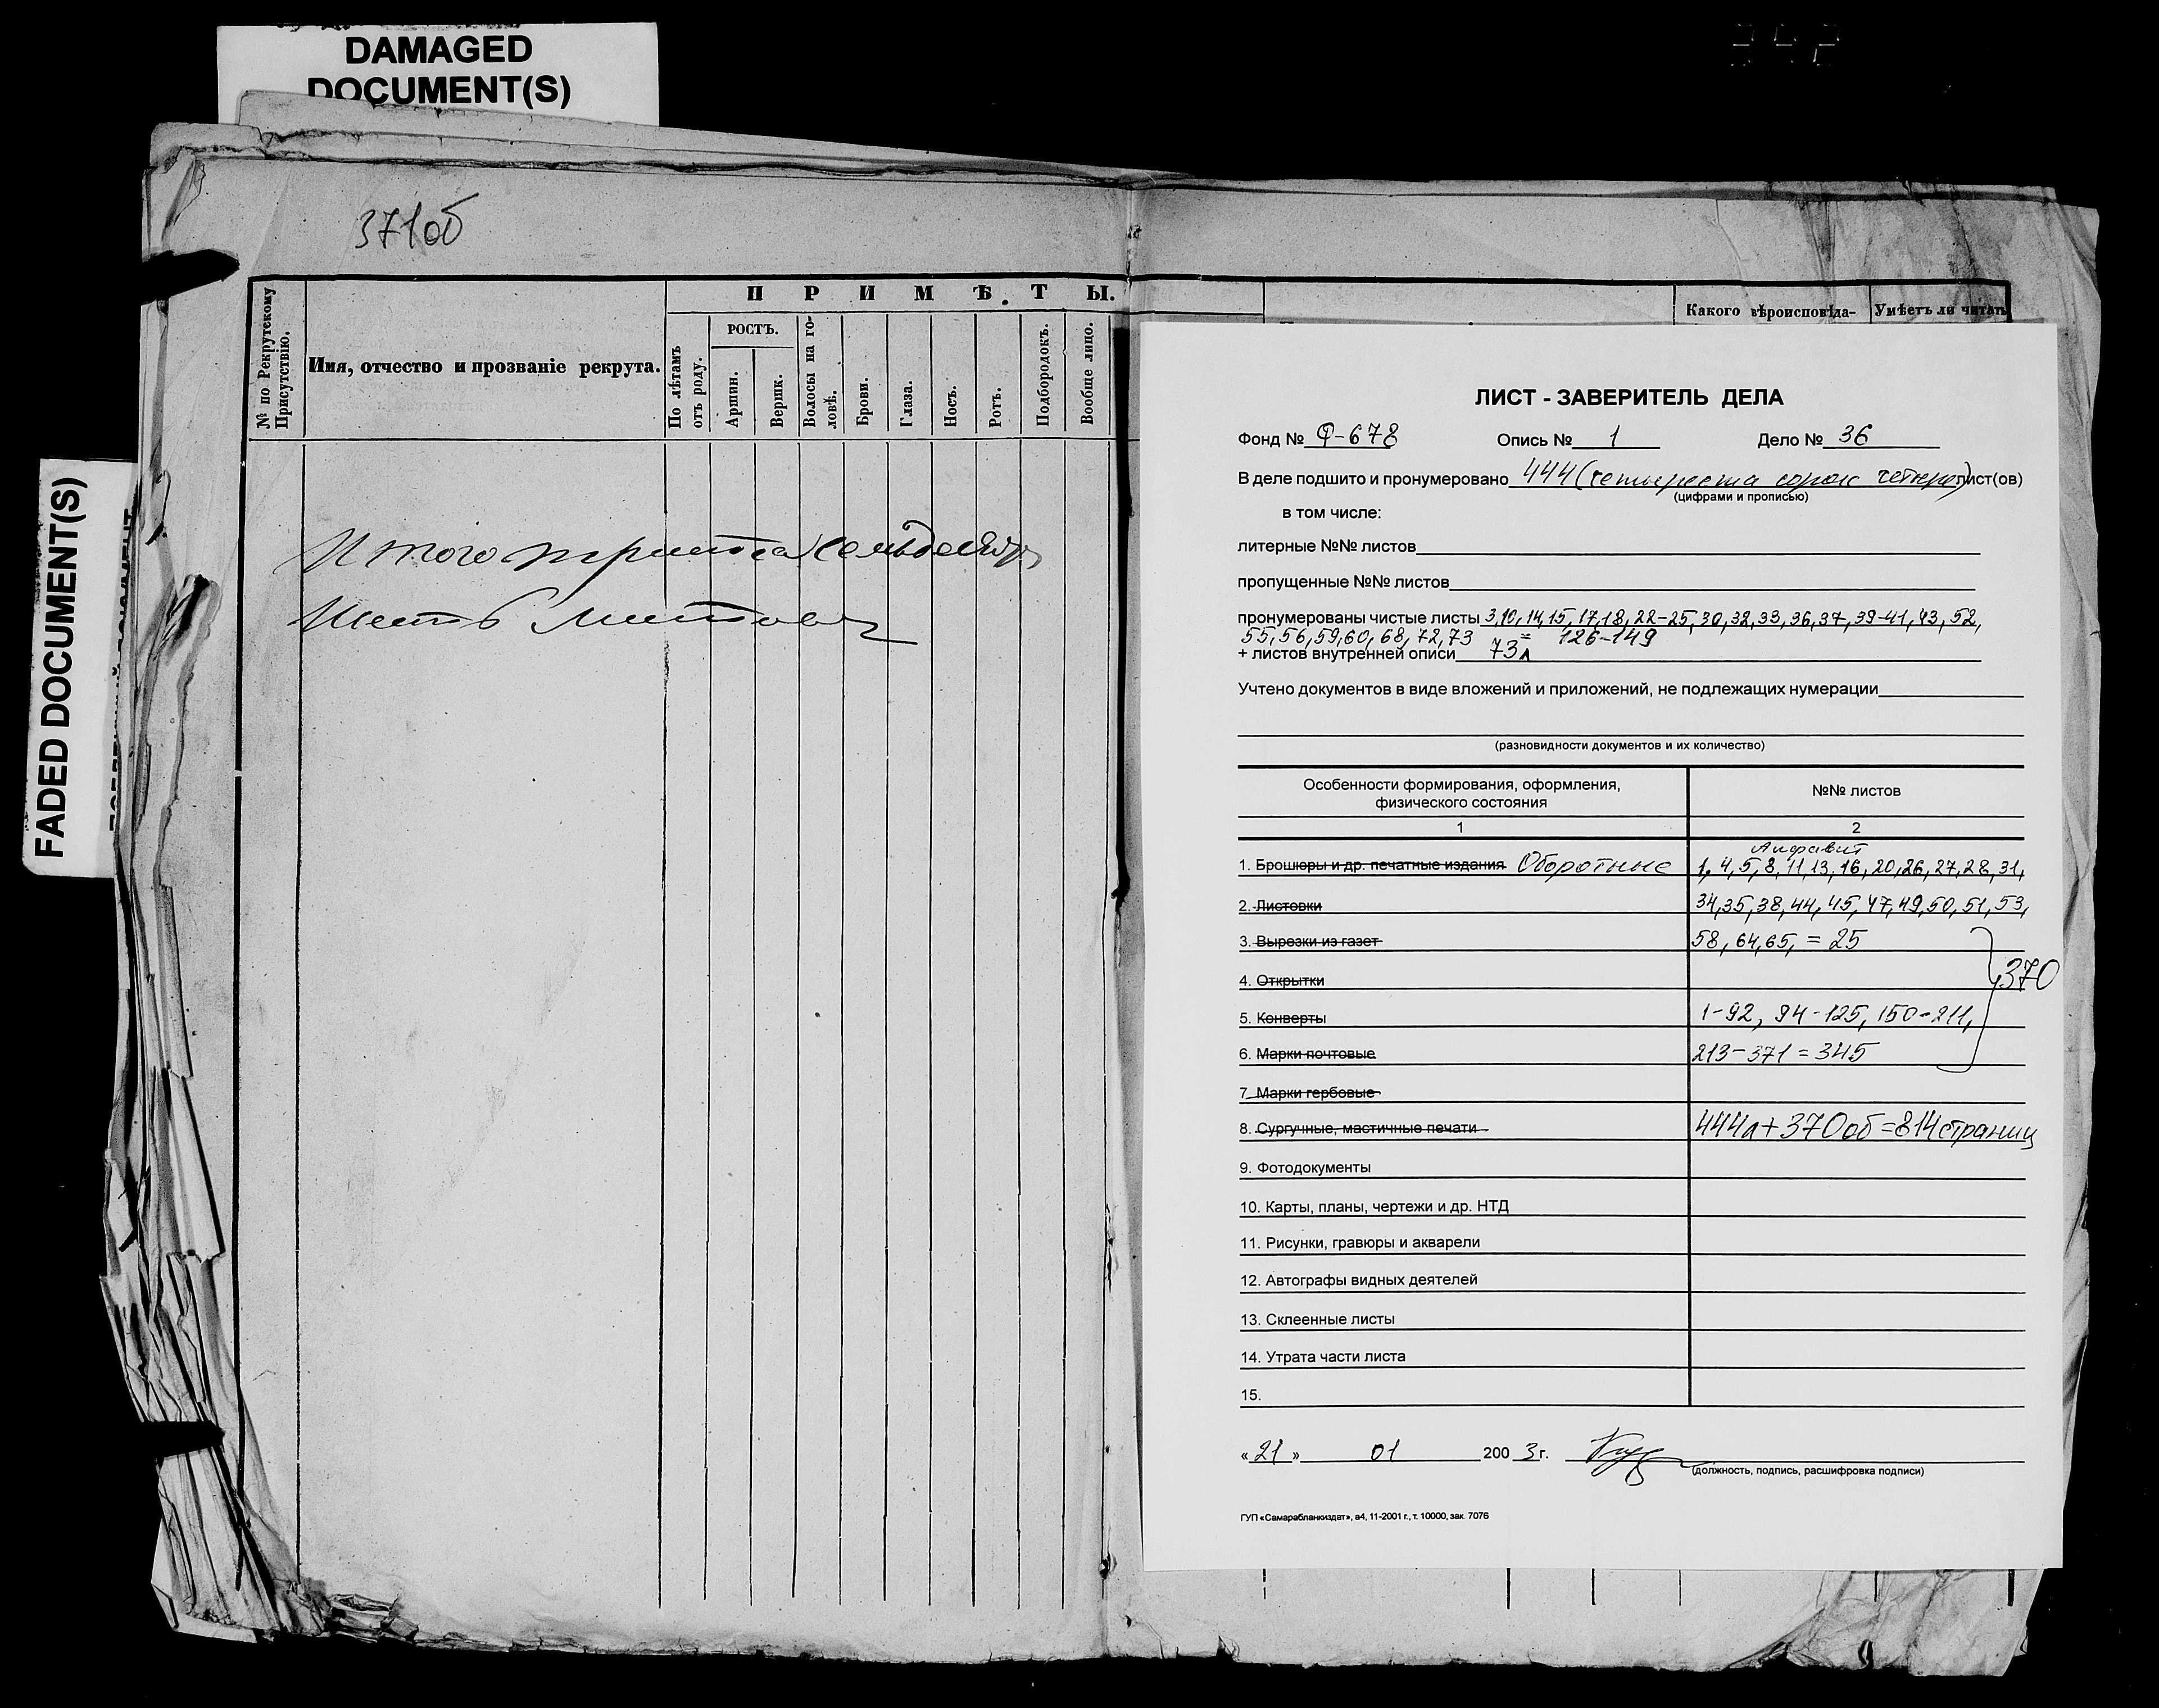 DAMAGED
DOCUMENT(S)
FADED DOCUMENT(S)
371об
№ по Рекрутскому
Присутствію.
Имя, отчество и прозваніе рекрута.
ПРИМѢТЫ.
По лѣтамъ
отъ роду.
РОСТЪ.
Аршин.
Вершк.
Волосы на го-
ловѣ.
Брови.
Глаза.
Носъ.
Ротъ.
Подбородокъ.
Вообще лицо.
Какого вѣроисповѣда-
Умѣетъ ли читать
Итого триста семьдесят
Шесть листов
ЛИСТ - ЗАВЕРИТЕЛЬ ДЕЛА
Фонд № Ф-678 Опись № 1 Дело № 36
В деле подшито и пронумеровано 444 (четыреста сорок четыре) лист(ов)
(цифрами и прописью)
в том числе:
литерные №№ листов
пропущенные №№ листов
пронумерованы чистые листы 3,10,14,15,17,18,22-25,30,32,33,36,37,39-41,43,52,
55,56,59,60,68,72,73 = 126-149
+ листов внутренней описи 73л
Учтено документов в виде вложений и приложений, не подлежащих нумерации
(разновидности документов и их количество)
Особенности формирования, оформления,
физического состояния
№№ листов
1 2
Алфавит
1. Брошюры и др. печатные издания Оборотные 1,4,5,8,11,13,16,20,26,27,28,31,
2. Листовки 34,35,38,44,45,47,49,50,51,53,
3. Вырезки из газет 58,64,65, = 25
4. Открытки 370
5. Конверты 1-92, 94-125, 150-211,
6. Марки почтовые 213-371 = 345
7. Марки гербовые
8. Сургучные, мастичные печати 444л+370об=814страниц
9. Фотодокументы
10. Карты, планы, чертежи и др. НТД
11. Рисунки, гравюры и акварели
12. Автографы видных деятелей
13. Склеенные листы
14. Утрата части листа
15.
«21» 01 2003г.
(должность, подпись, расшифровка подписи)
ГУП «Самарабланкиздат», а4, 11-2001 г., т. 10000, зак. 7076